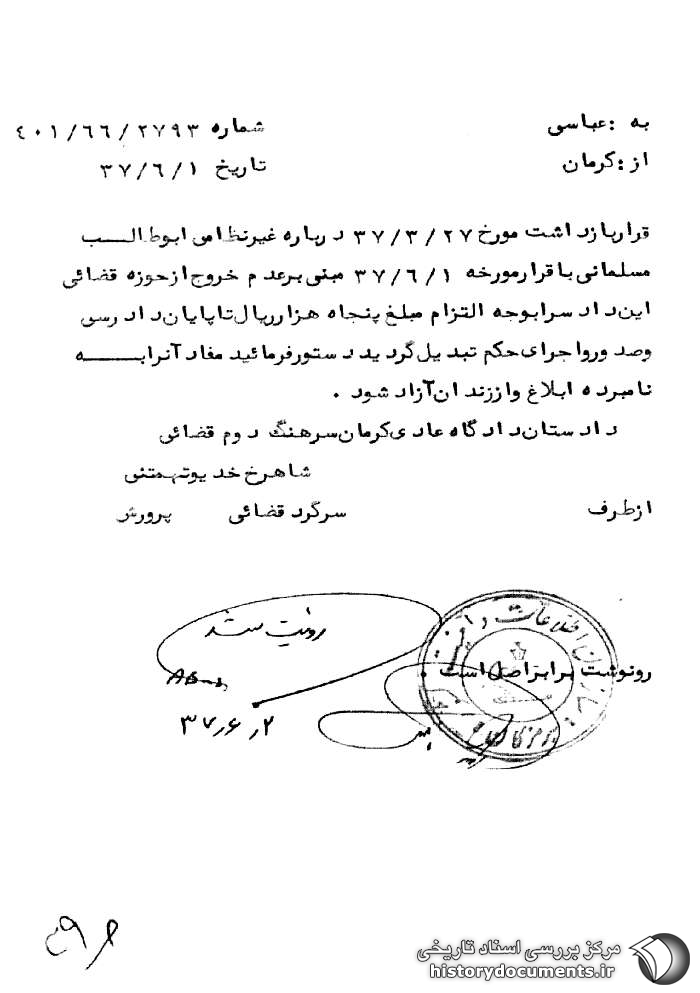 به : عباسی
شماره ٤٠١/٦٦/٢٧٩٣
از : کرمان
تاریخ ٣٧/٦/١
قرار بازداشت مورخ ٣٧/٣/٢٧ درباره غیرنظامی ابوطالب
مسلمانی با قرار مورخه ٣٧/٦/١ مبنی بر عدم خروج از حوزه قضائی
این دادسرا بوجه التزام مبلغ پنجاه هزار ریال تا پایان دادرسی
وصدور و اجرای حکم تبدیل گردید دستور فرمائید مفاد آنرا به
نامبرده ابلاغ و از زندان آزاد شود .
دادستان دادگاه عادی کرمان سرهنگ دوم قضائی
شاهرخ خدیو تهمتنی
از طرف سرگرد قضائی پرورش
رونوشت برابر اصل است .
رؤیت شد
٣٧/٦/٢
مرکز بررسی اسناد تاریخی
historydocuments.ir